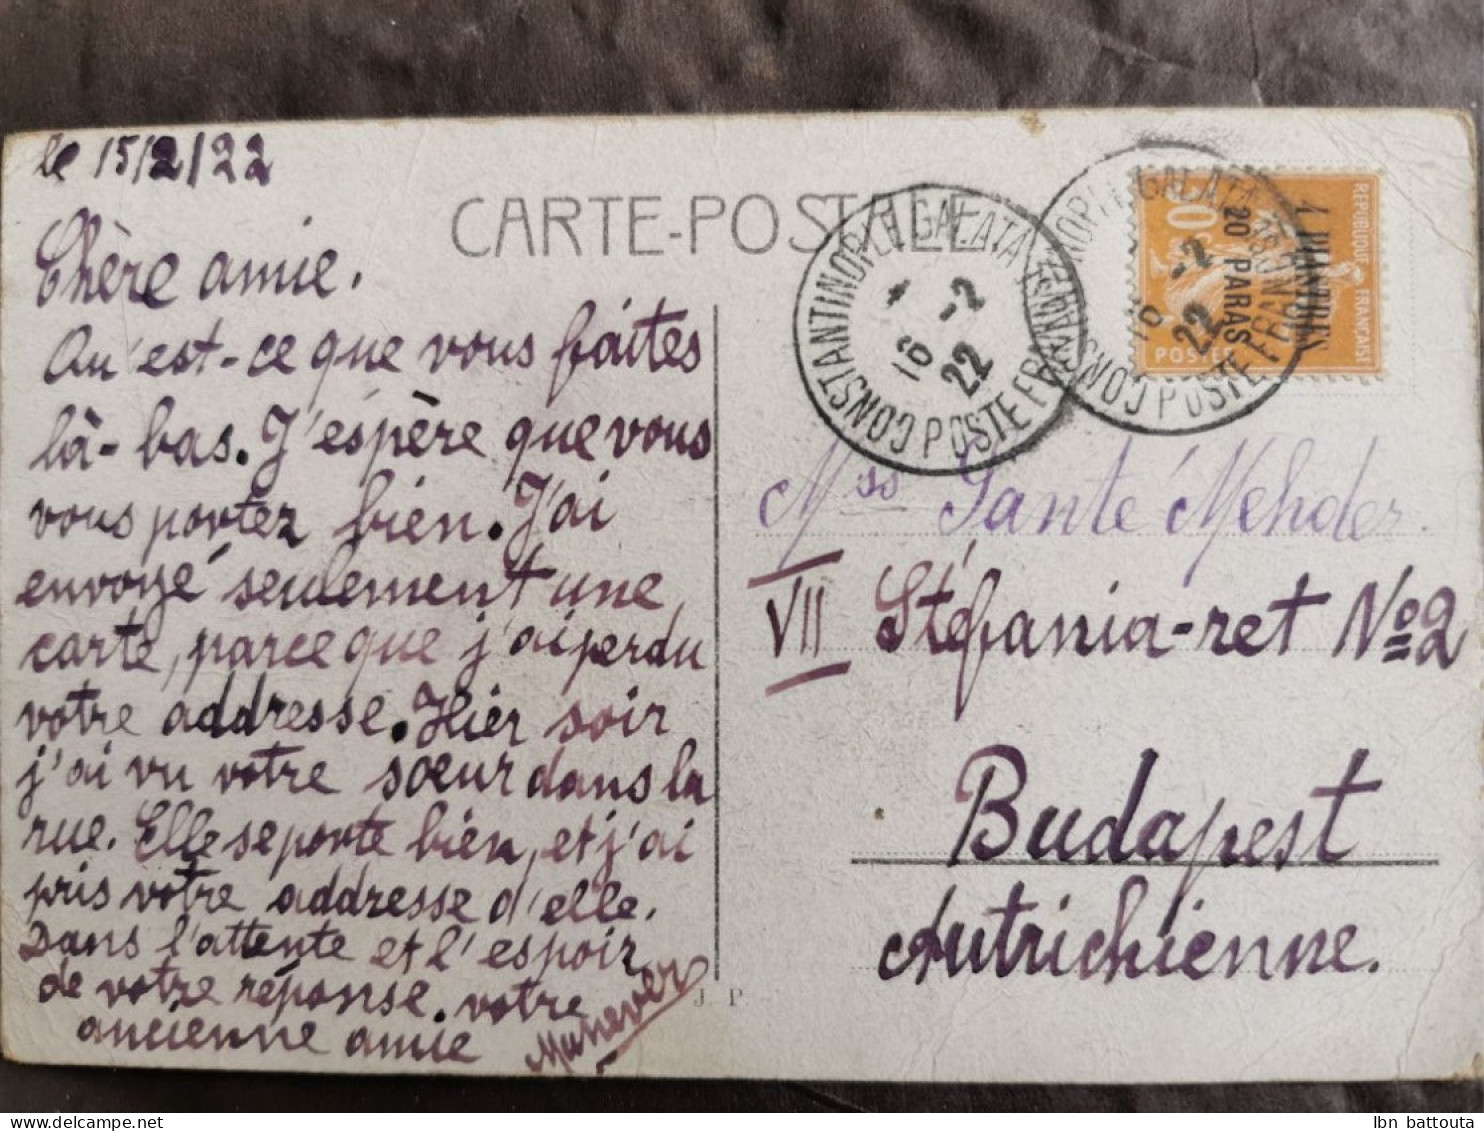 le 15/2/22
Chère amie.
Qu'est-ce que vous faites
là-bas. J'espère que vous
vous portez bien. J'ai
envoyé seulement une
carte, parce que j'ai perdu
votre addresse. Hier soir
j'ai vu votre sœur dans la
rue. Elle se porte bien, et j'ai
pris votre addresse d'elle.
Dans l'attente et l'espoir
de votre réponse. votre
ancienne amie Munever
CARTE-POSTALE
CONSTANTINOPLE GALATA
POSTE FRANÇAISE
16 -2
22
CONSTANTINOPLE GALATA
POSTE FRANÇAISE
16 -2
22
REPUBLIQUE FRANÇAISE
POSTES
1 PIASTRE
20 PARAS
Mss Santé Mehder.
VII Stéfania-ret No 2
Budapest
Autrichienne.
J P
Ibn battouta